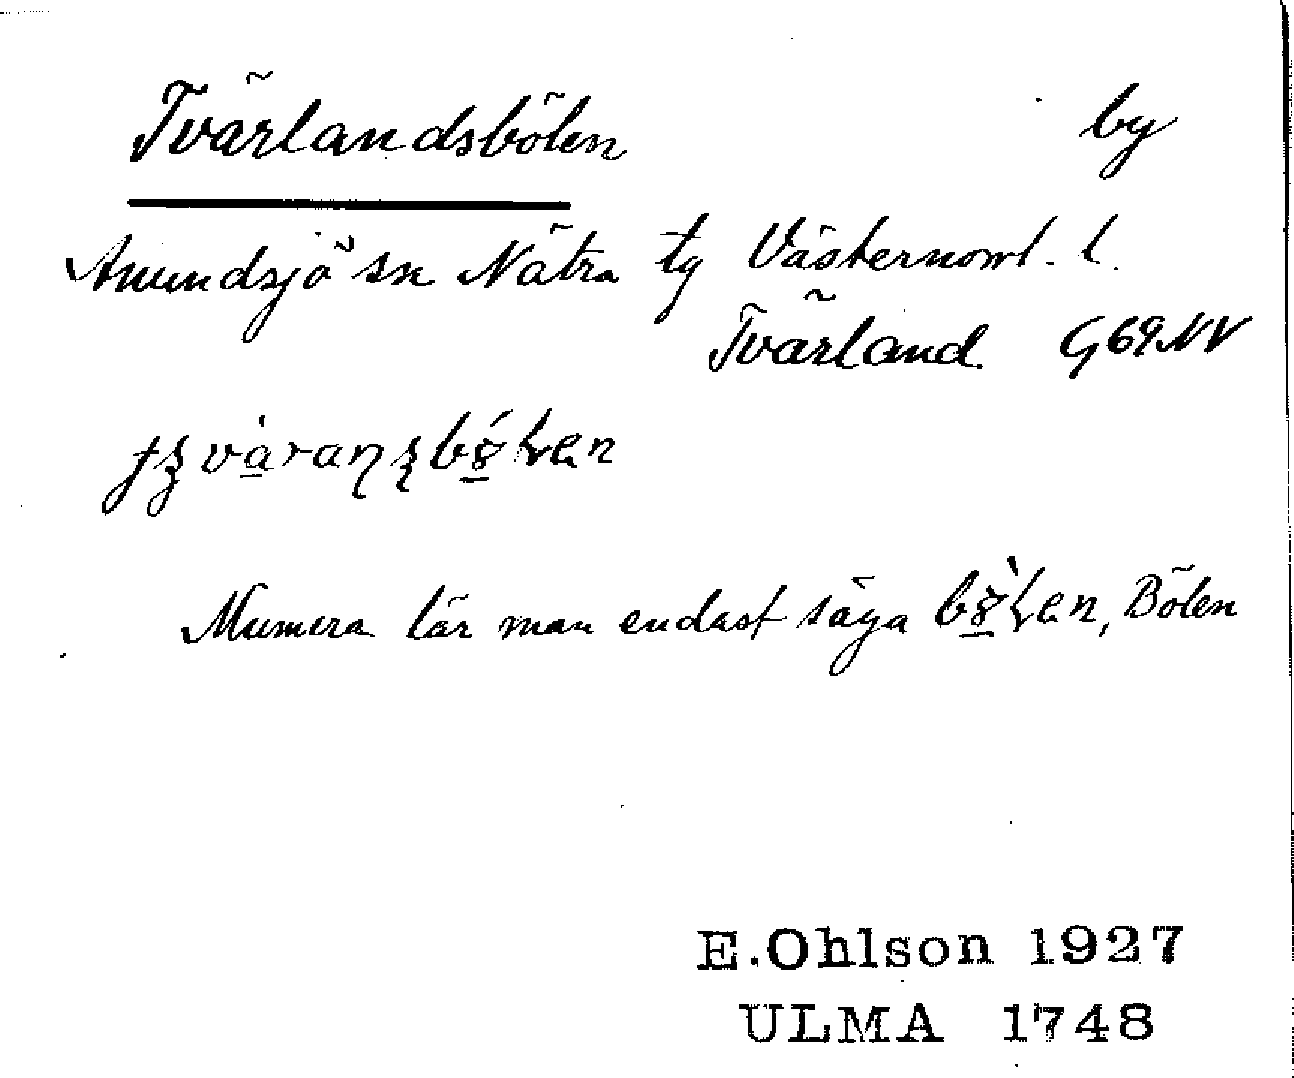 Tvärlandsbölen by
Anundsjö sn Nätra tg Västernorrl. l.
Tvärland G69NV
Numera lär man endast säga Bölen
E.Ohlson 1927
ULMA 1748